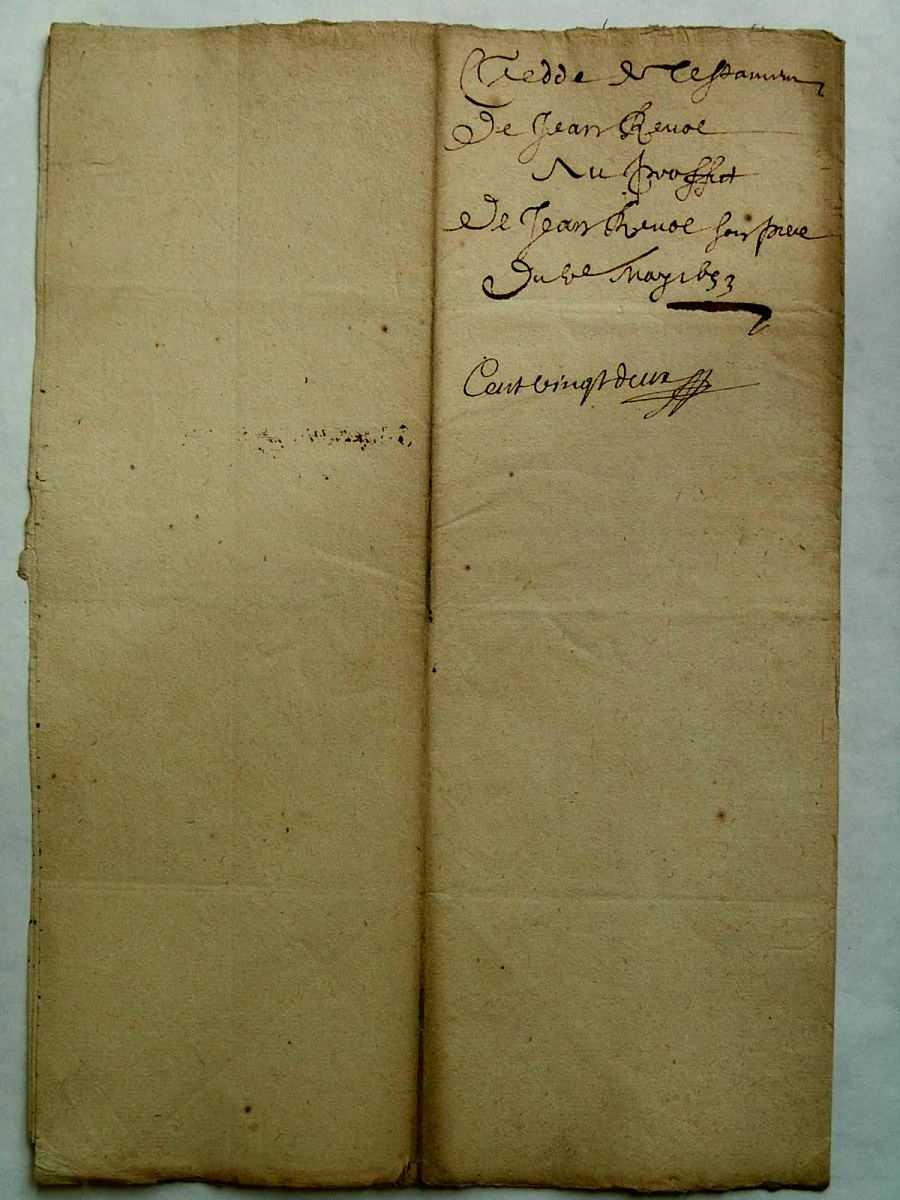 Cledde de Testamen
De Jean Revol
Au proffict
De Jean Revol son pere
Du May 1653
Cent vingt deux